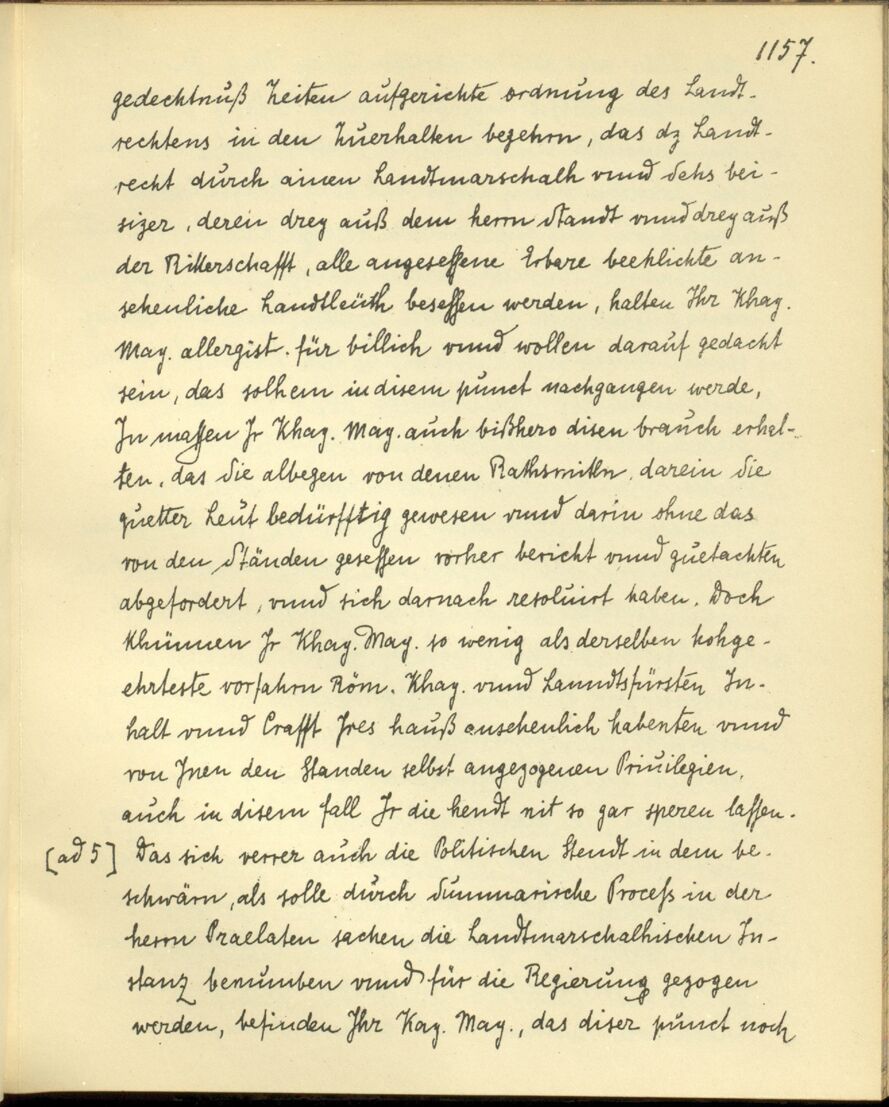 1157.
gedechtnuß Zeiten aufgerichte ordnung des Landt-
rechtens in den Zuerhalten begehrn, das dz Landt-
recht durch ainen Landtmarschalh vnnd Sehs bei-
sizer, deren drey auß dem herrn Standt vnnd drey auß
der Ritterschafft, alle angesessene Erbare beehlichte an-
sehenliche Landtleüth besessen werden, halten Ihr Khay.
May. allergist. für billich vnnd wollen darauf gedacht
sein, das solhem in disem punct nachgangen werde,
In massen Jr Khay. May. auch bißhero disen brauch erhal-
ten, das Sie albegen von denen Rathsmitln, darein Sie
guetter Leut bedürfftig gewesen vnnd darin ohne das
von den Ständen gesessen vorher bericht vnnd guetachten
abgefordert, vnnd sich darnach resoluirt haben. Doch
Khünnen Jr Khay. May. so wenig als derselben hohge-
ehrteste vorfahrn Röm. Khay. vnnd Lanndtsfürsten In-
halt vnnd Crafft Jres hauß ansehenlich habenten vnnd
von Jnen den Standen selbst angezogenen Priuilegien,
auch in disem fall Jr die hendt nit so gar speren lassen.
[ad 5] Das sich verrer auch die Politischen Stendt in dem be-
schwärn, als solle durch Summarische Process in der
herrn Praelaten sachen die Landtmarschalhischen In-
stanz benumben vnnd für die Regierung gezogen
werden, befinden Ihr Kay. May., das diser punct noch